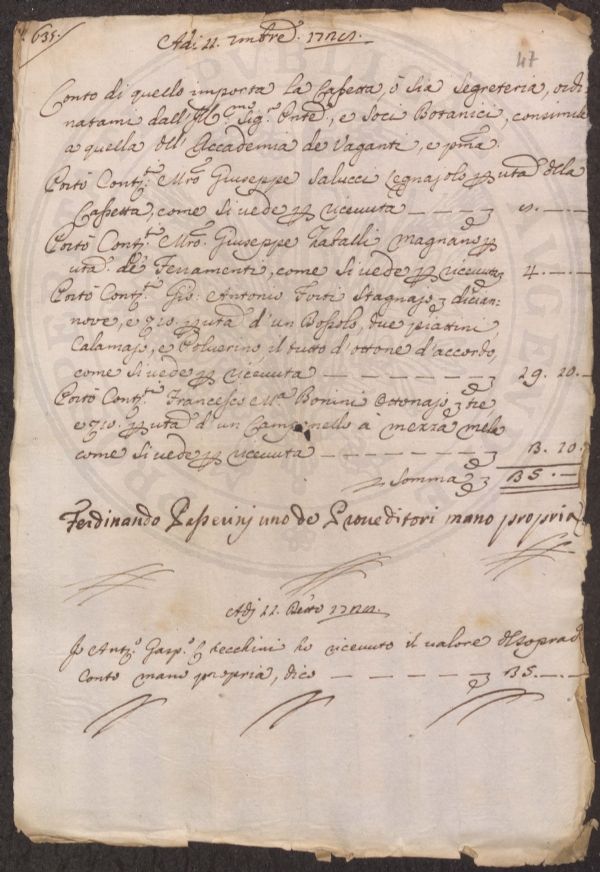 635.
47
Adi 22. 9mbre. 1721.
Conto di quello importa la Cassetta, ò sia Segreteria, ordi-
natami dall' Ill.mo Sig.r Pnte, e Soci Botanici, consimile
a quella dell' Accademia de Vaganti, e p.ma
Portò Cont.ti Mro. Giuseppe Salucci Legnajolo p uta della
Cassetta, come si vede p ricevuta
Portò Cont.ti Mro. Giuseppe Natalli Magnano p
uta de Ferramenti, come si vede p ricevuta 4. — —
Portò Cont.ti Gio: Antonio Forti Stagnajo dician-
nove, e p uta d'un Bossolo, due piattini,
Calamajo, e Polverino, il tutto d'ottone d'accordo,
come si vede p ricevuta 19. 10. —
Portò Cont.ti Francesco M.a Bonini Ottonajo tre
e p uta d'un Campanello a mezza mela
come si vede p ricevuta 3. 10.
Somma 35. —
Ferdinando Passerinj uno de Proveditori mano propria
Adj 22. Detto 1721.
Io Ant.o Gasp.o Cecchini ho ricevuto il valore del soprad.
Conto mano propria, dico 35. —